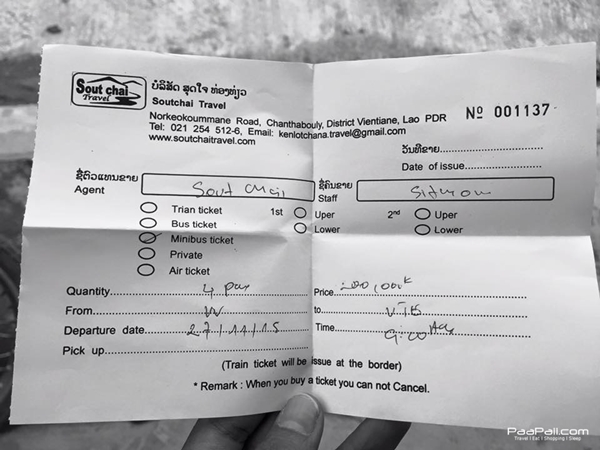 Sout chai
Travel
ບໍລິສັດ ສຸດໃຈ ທ່ອງທ່ຽວ
Soutchai Travel
Norkeokoummane Road, Chanthabouly, District Vientiane, Lao PDR
Tel: 021 254 512-6, Email: kenlotchana.travel@gmail.com
www.soutchaitravel.com
Nº 001137
ວັນທີຂາຍ
Date of issue
ຊື່ຕົວແທນຂາຍ
Agent Sout chai
ຊື່ຄົນຂາຍ
Staff
Trian ticket 1st Uper 2nd Uper
Bus ticket Lower Lower
Minibus ticket
Private
Air ticket
Quantity 4 pax Price 200,000k
From VV to VTE
Departure date 27/11/15 Time 9:00
Pick up
(Train ticket will be issue at the border)
* Remark : When you buy a ticket you can not Cancel.
PaaPaii.com
Travel | Eat | Shopping | Sleep